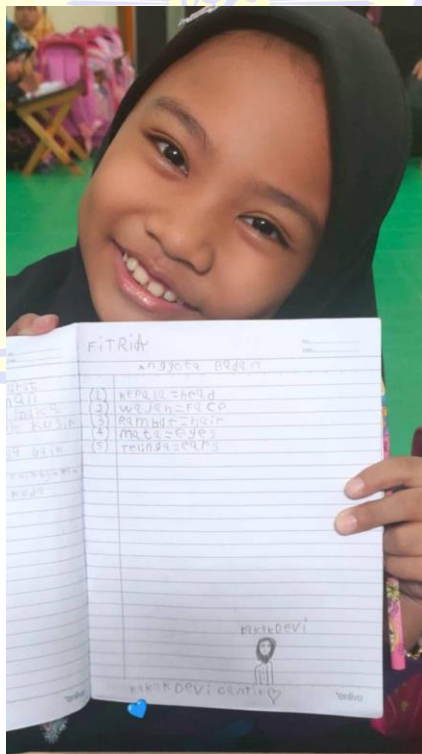 FiTRiA
Anggota Badan
(1) Kepala = head
(2) wajah = Face
(3) Rambut = hair
(4) mata = eyes
(5) Telinga = ears
baik
KAKAK DEVi
KAKAK DEVi cantik